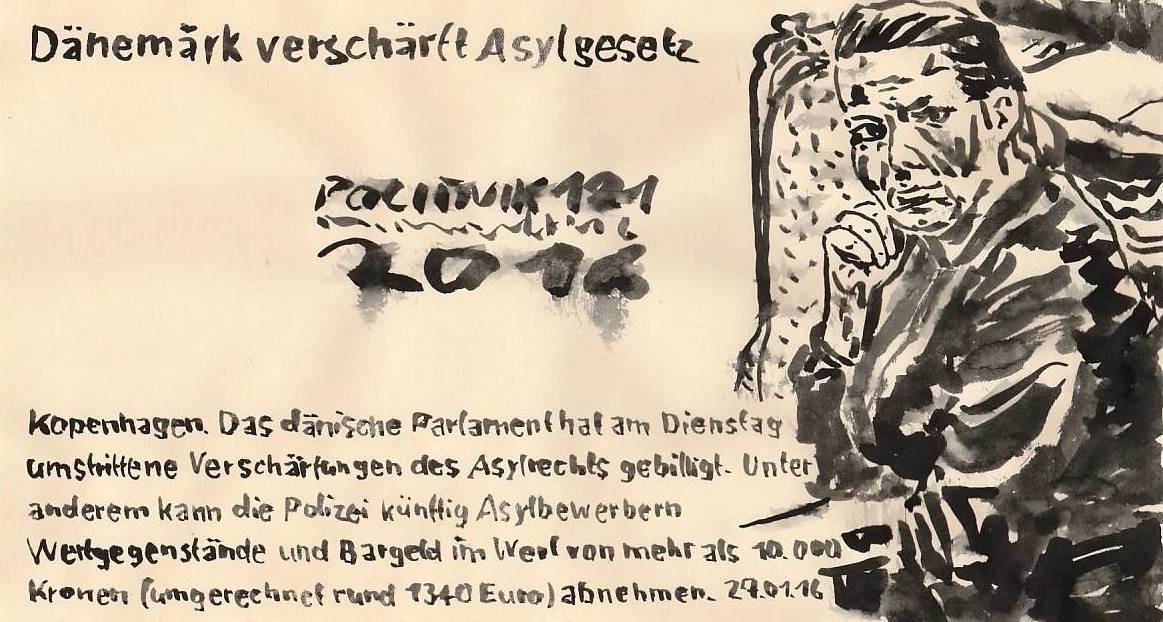 Dänemärk verschärft Asylgesetz
POLITIVIK 121
2016
Kopenhagen. Das dänische Parlament hat am Dienstag
umstrittene Verschärfungen des Asylrechts gebilligt. Unter
anderem kann die Polizei künftig Asylbewerbern
Wertgegenstände und Bargeld im Wert von mehr als 10.000
Kronen (umgerechnet rund 1340 Euro) abnehmen. 27.01.16